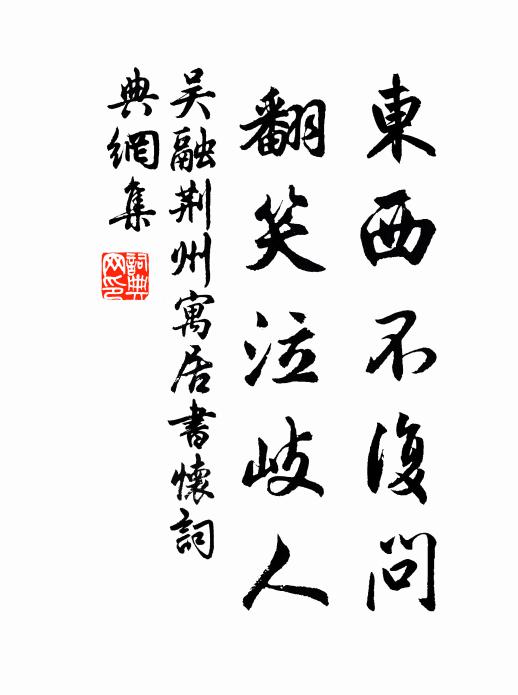 東西不復問
翻笑泣岐人
吳融荆州寓居書懷詞
典網集
詞典
网印